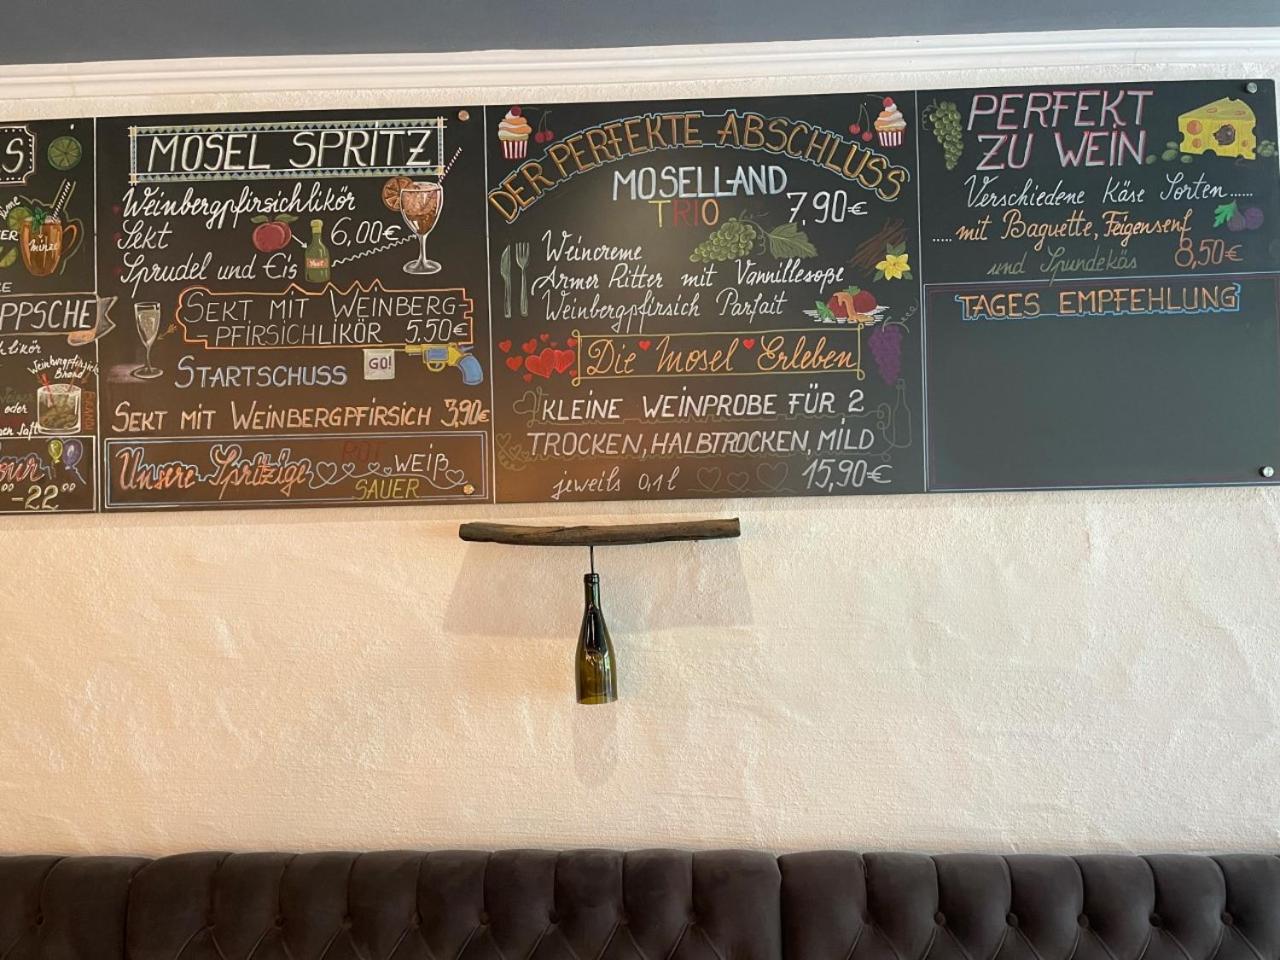 MOSEL SPRITZ
Weinbergpfirsichlikör
Sekt
6,00€
Sprudel und Eis
SEKT MIT WEINBERG-
-PFIRSICHLIKÖR 5,50€
STARTSCHUSS
GO!
SEKT MIT WEINBERGPFIRSICH 3,90€
Unsere Spritzige
ROT
WEIß
SAUER
DER PERFEKTE ABSCHLUSS
MOSELLAND
TRIO
7,90€
Weincreme
Armer Ritter mit Vannillesoße
Weinbergpfirsich Parfait
Die Mosel Erleben
KLEINE WEINPROBE FÜR 2
TROCKEN, HALBTROCKEN, MILD
jeweils 0,1 l
15,90€
PERFEKT
ZU WEIN
Verschiedene Käse Sorten......
.....mit Baguette, Feigensenf
und Spundekäs
8,50€
TAGES EMPFEHLUNG
S
minze
PPSCHE
likör
Weinbergpfirsich
Brand
oder
Saft
-22⁰⁰